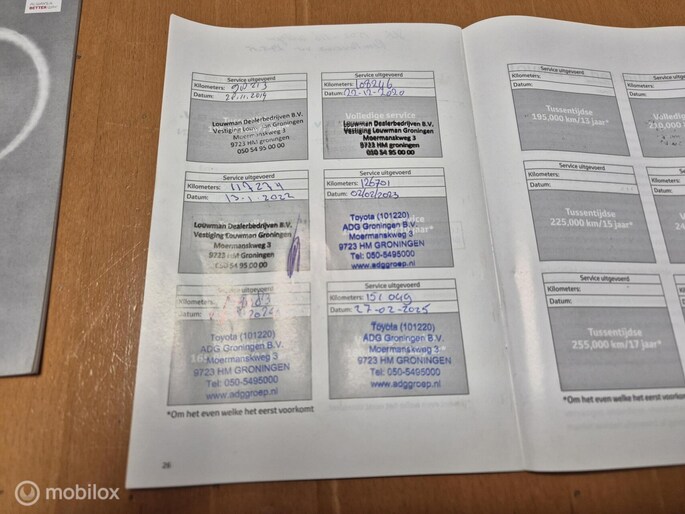 BETTER
Service uitgevoerd
Kilometers:
Datum:
Louwman Dealerbedrijven B.V.
Vestiging Louwman Groningen
Moermanskweg 3
9723 HM Groningen
050 54 95 00 00
Service uitgevoerd
Kilometers: 108246
Datum: 22-12-2020
Volledige service
Louwman Dealerbedrijven B.V.
Vestiging Louwman Groningen
Moermanskweg 3
9723 HM Groningen
050 54 95 00 00
Service uitgevoerd
Kilometers: 117274
Datum: 13-1-2022
Louwman Dealerbedrijven B.V.
Vestiging Louwman Groningen
Moermanskweg 3
9723 HM Groningen
050 54 95 00 00
Service uitgevoerd
Kilometers: 126701
Datum: 02/02/2023
Toyota (101220)
ADG Groningen B.V.
Moermanskweg 3
9723 HM GRONINGEN
Tel: 050-5495000
www.adggroep.nl
Service uitgevoerd
Kilometers:
Datum:
Toyota (101220)
ADG Groningen B.V.
Moermanskweg 3
9723 HM GRONINGEN
Tel: 050-5495000
www.adggroep.nl
Service uitgevoerd
Kilometers: 151049
Datum: 27-02-2025
Toyota (101220)
ADG Groningen B.V.
Moermanskweg 3
9723 HM GRONINGEN
Tel: 050-5495000
www.adggroep.nl
*Om het even welke het eerst voorkomt
26
Service uitgevoerd
Kilometers:
Datum:
Tussentijdse
195,000 km/13 jaar*
Service uitgevoerd
Kilometers:
Datum:
Tussentijdse
225,000 km/15 jaar*
Service uitgevoerd
Kilometers:
Datum:
Tussentijdse
255,000 km/17 jaar*
mobilox